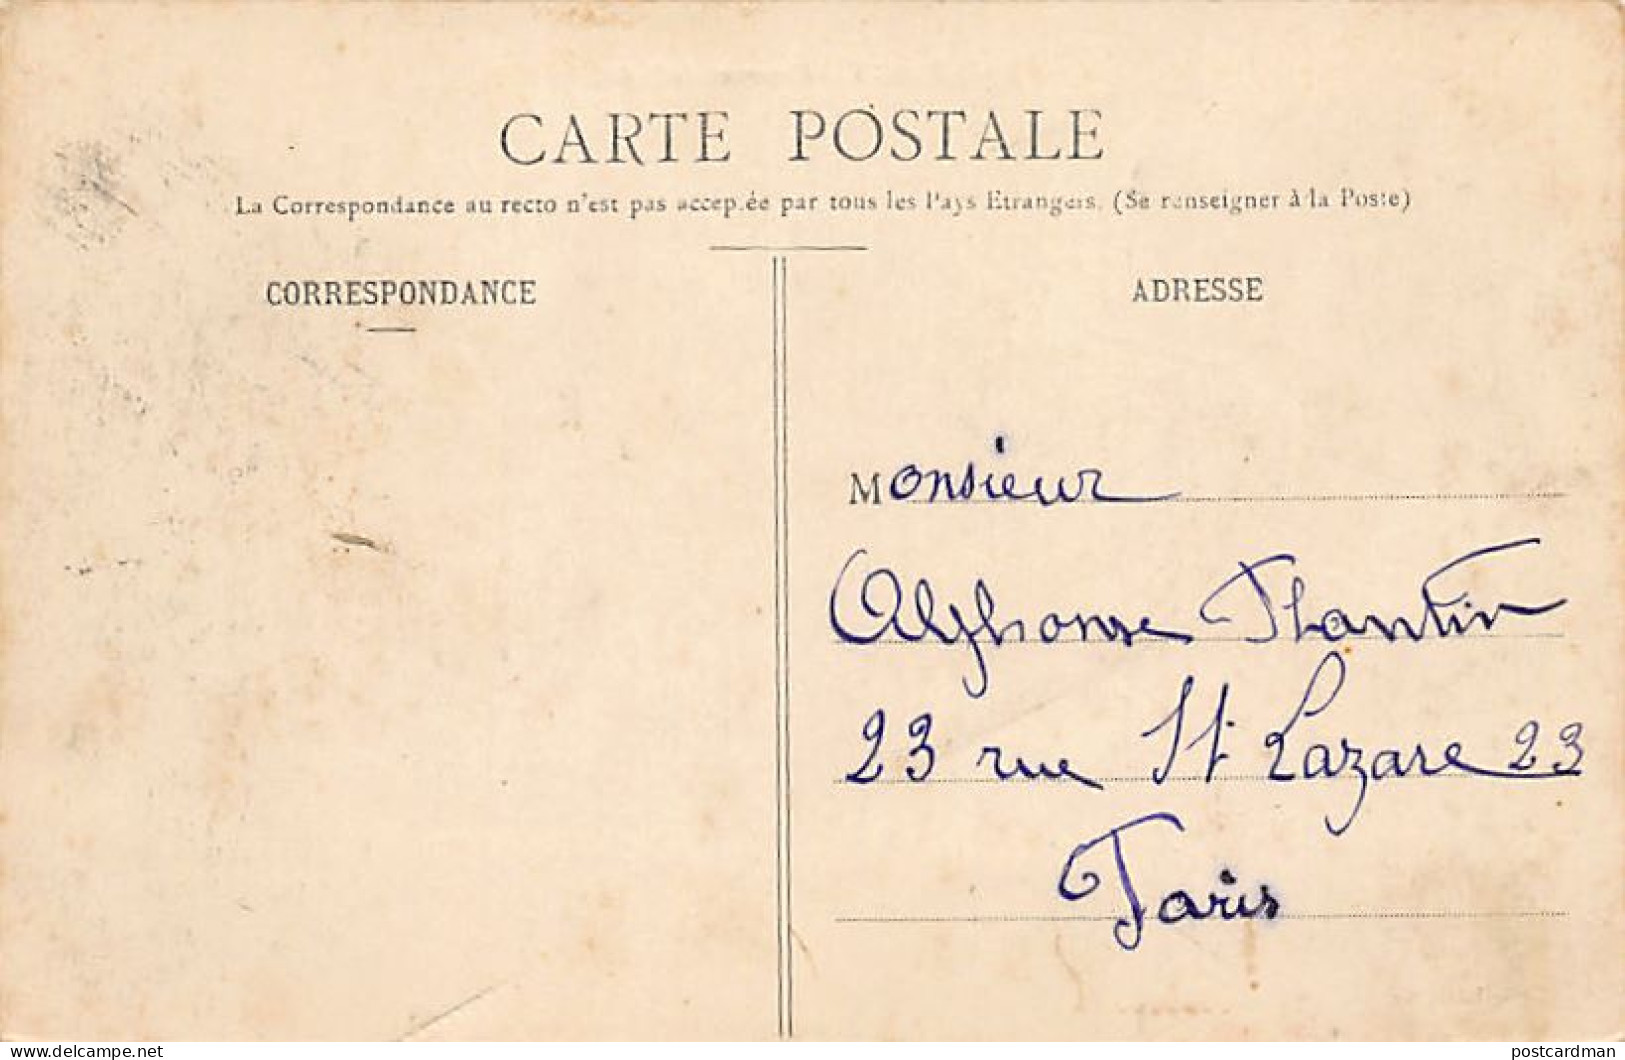 CARTE POSTALE
La Correspondance au recto n'est pas acceptée par tous les Pays Etrangers. (Se renseigner à la Poste)
CORRESPONDANCE
ADRESSE
Monsieur
Alphonse Plantin
23 rue St Lazare 23
Paris
https://www.delcampe.net
postcardman